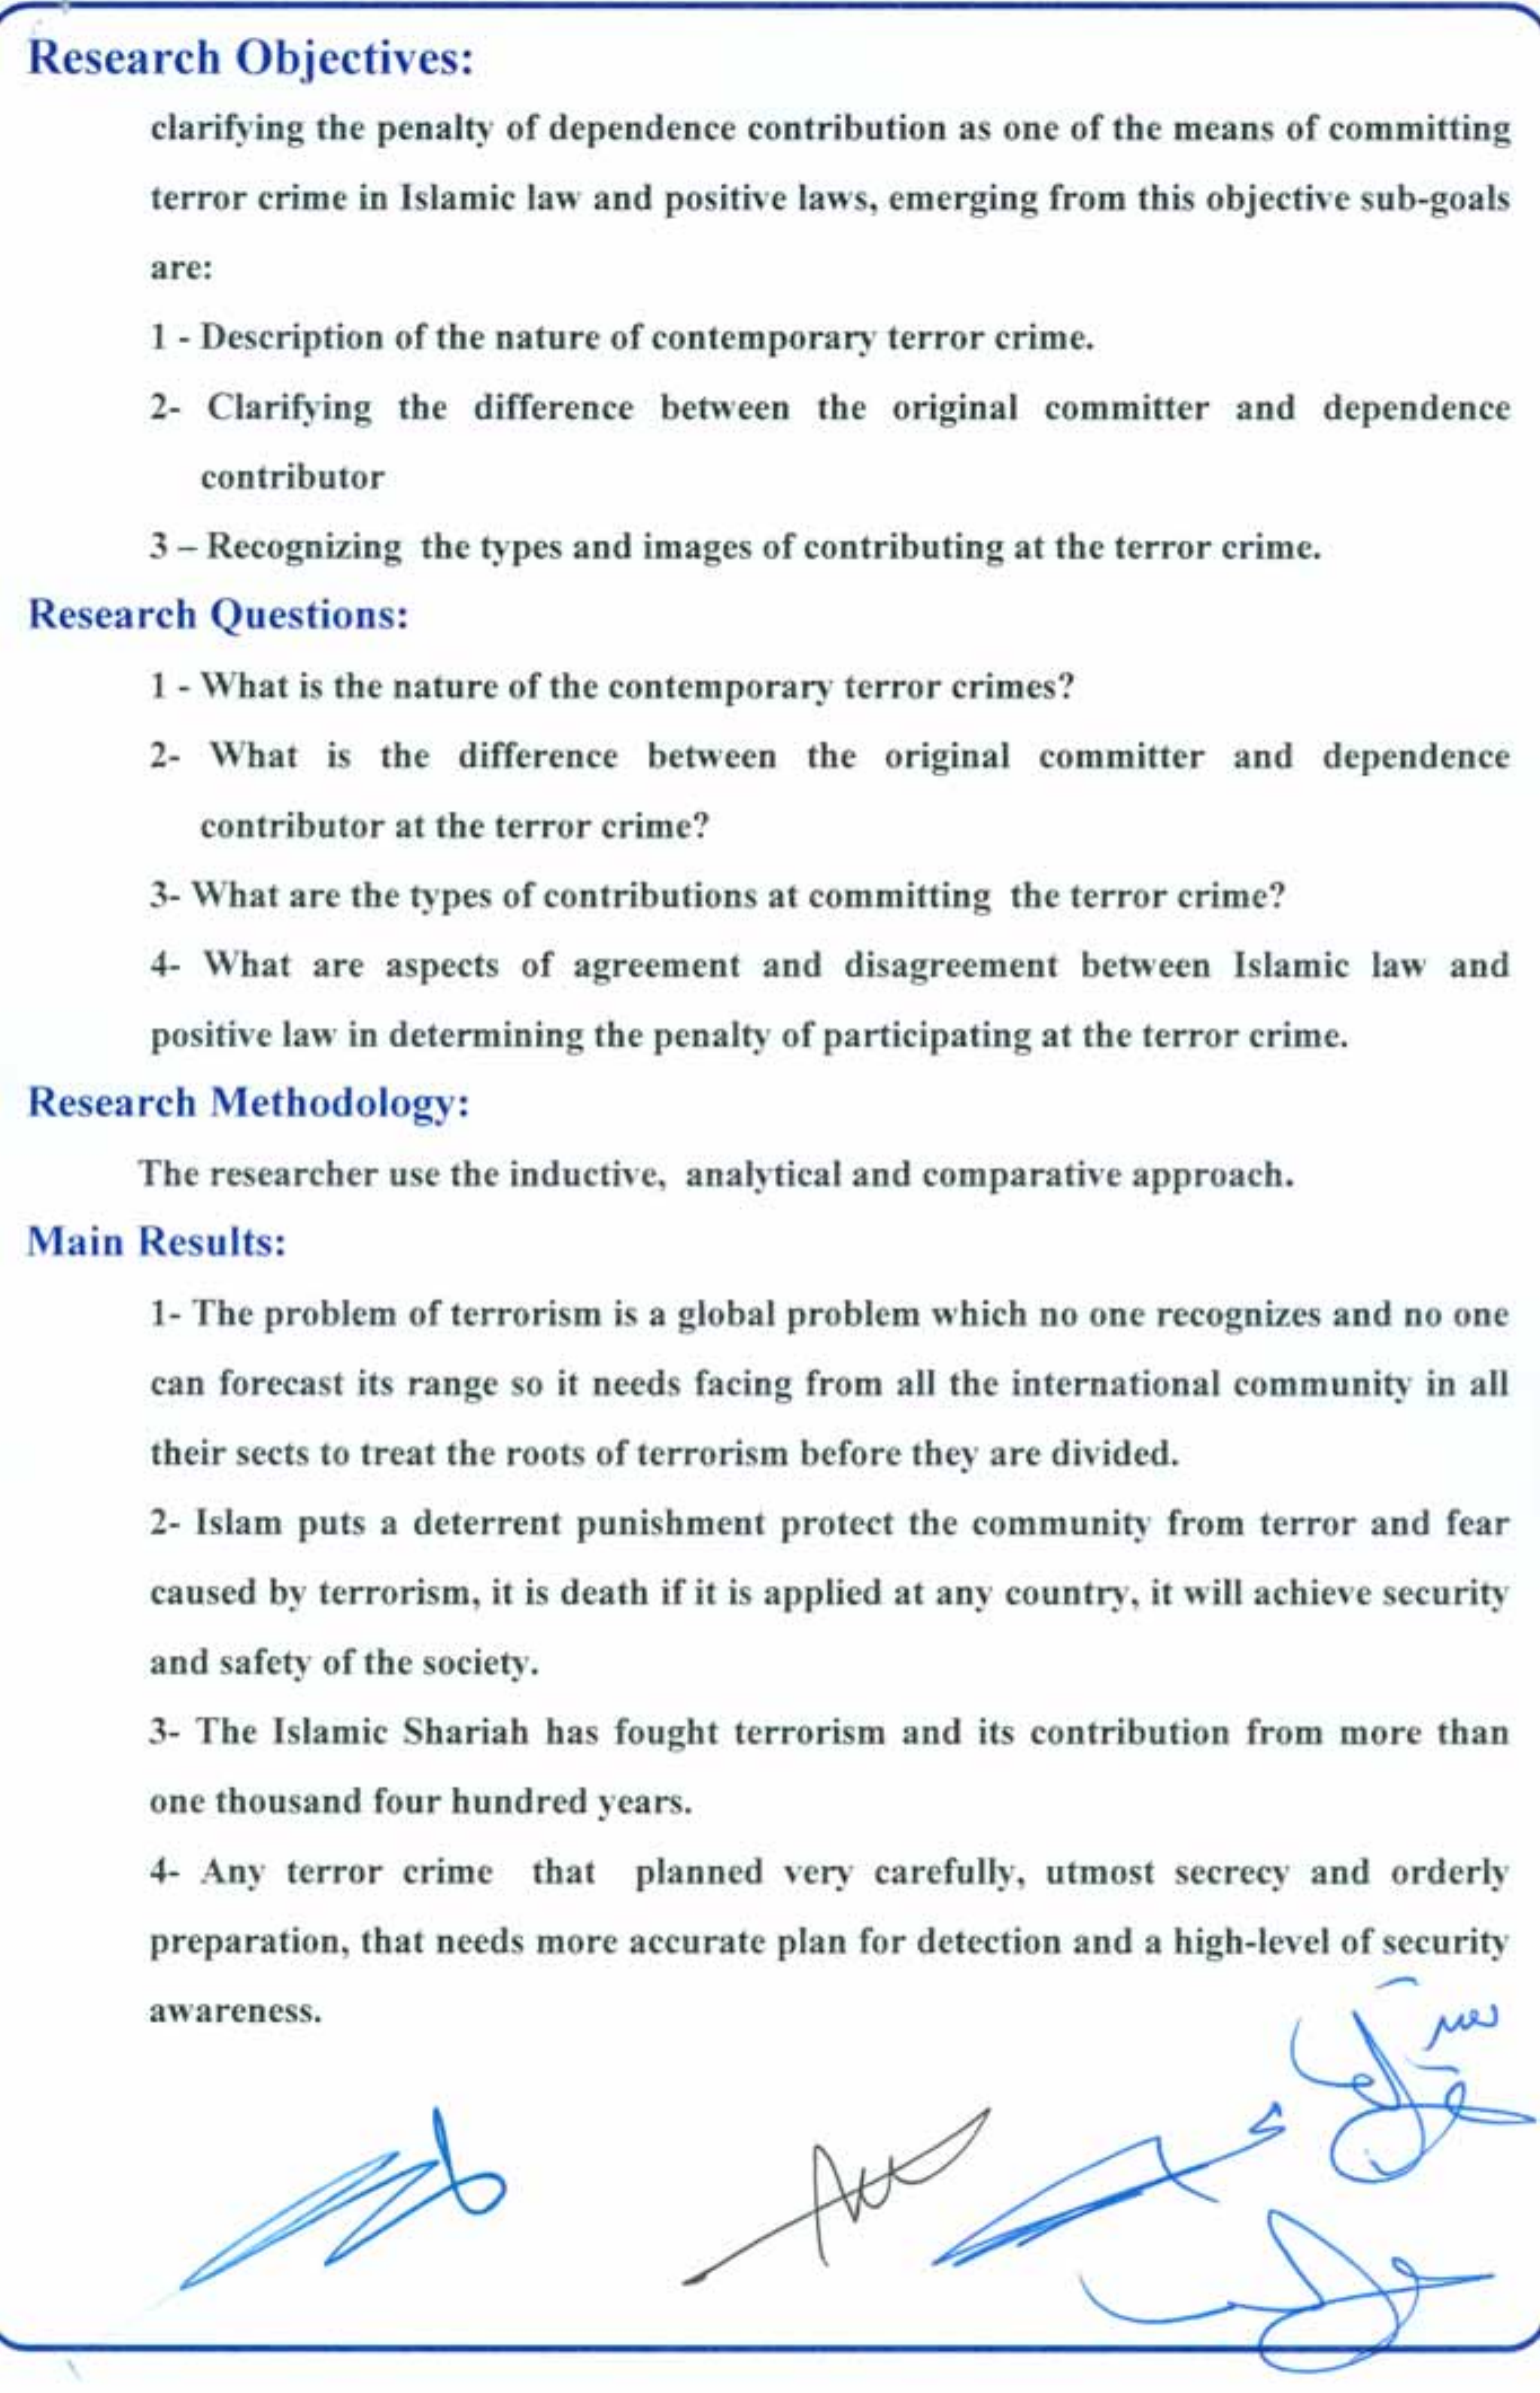 Research Objectives:
clarifying the penalty of dependence contribution as one of the means of committing
terror crime in Islamic law and positive laws, emerging from this objective sub-goals
are:
1 - Description of the nature of contemporary terror crime.
2- Clarifying the difference between the original committer and dependence
contributor
3 – Recognizing the types and images of contributing at the terror crime.
Research Questions:
1 - What is the nature of the contemporary terror crimes?
2- What is the difference between the original committer and dependence
contributor at the terror crime?
3- What are the types of contributions at committing the terror crime?
4- What are aspects of agreement and disagreement between Islamic law and
positive law in determining the penalty of participating at the terror crime.
Research Methodology:
The researcher use the inductive, analytical and comparative approach.
Main Results:
1- The problem of terrorism is a global problem which no one recognizes and no one
can forecast its range so it needs facing from all the international community in all
their sects to treat the roots of terrorism before they are divided.
2- Islam puts a deterrent punishment protect the community from terror and fear
caused by terrorism, it is death if it is applied at any country, it will achieve security
and safety of the society.
3- The Islamic Shariah has fought terrorism and its contribution from more than
one thousand four hundred years.
4- Any terror crime that planned very carefully, utmost secrecy and orderly
preparation, that needs more accurate plan for detection and a high-level of security
awareness.